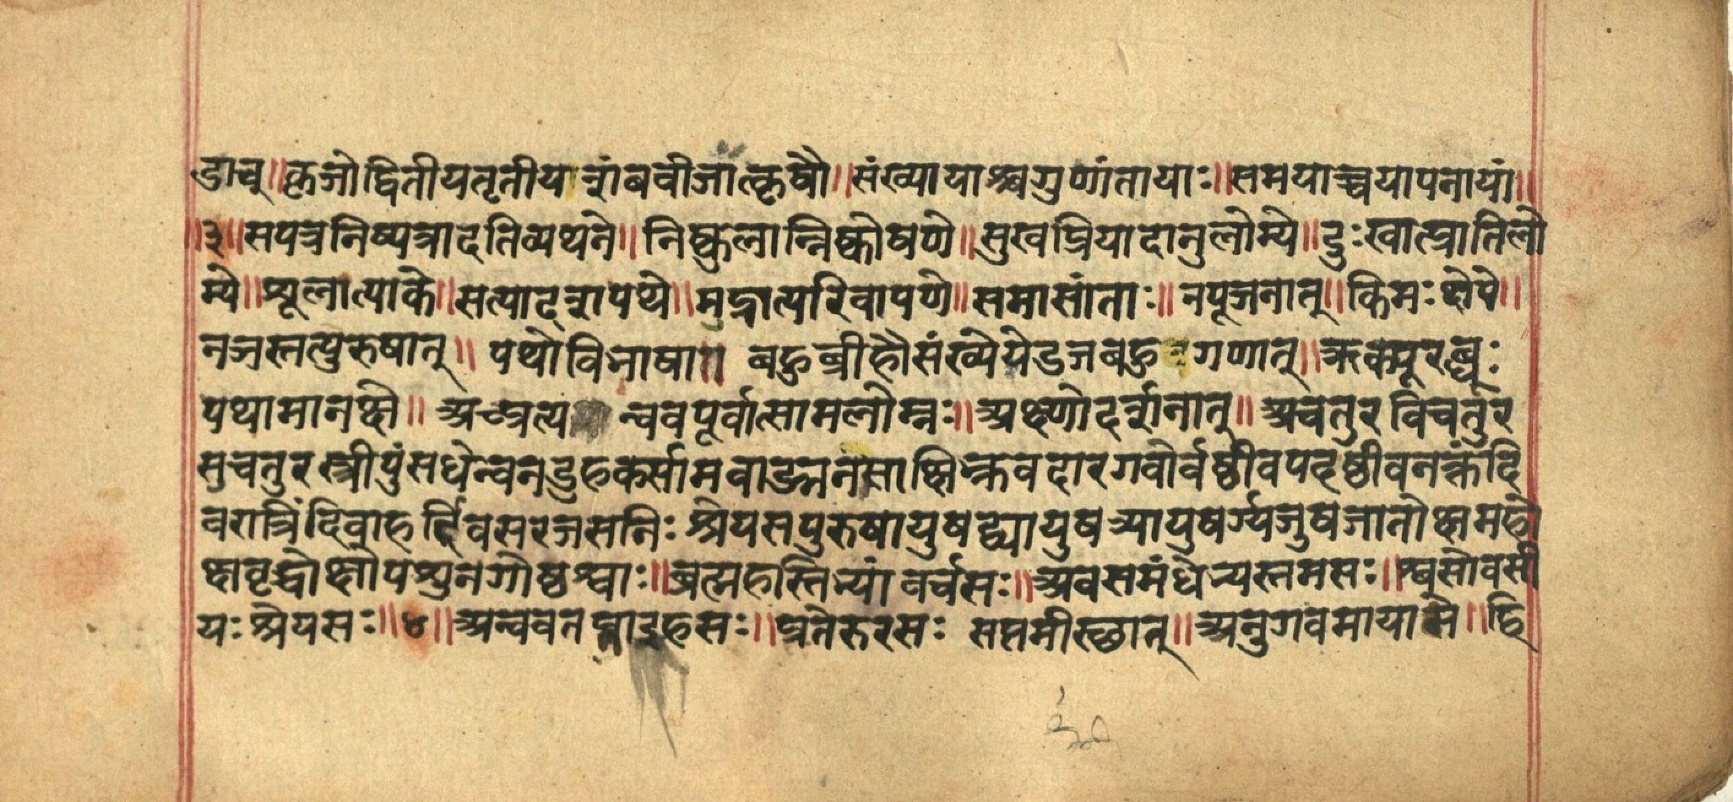 डाच् ॥ कृञो द्वितीयतृतीयशंबबीजात्कृषौ ॥ संख्यायाश्च गुणांतायाः ॥ समयाच्च यापनायां ॥
॥ ३ ॥ सपत्रनिष्पत्रादतिव्यथने ॥ निष्कुलान्निष्कोषणे ॥ सुखप्रियादानुलोम्ये ॥ दुःखात्प्रातिलो
म्ये ॥ शूलात्पाके ॥ सत्यादशपथे ॥ मद्रात्परिवापणे ॥ समासांताः ॥ न पूजनात् ॥ किमः क्षेपे ॥
नञस्तत्पुरुषात् ॥ पथो विभाषा ॥ बहुव्रीहौ संख्येये डजबहुगणात् ॥ ऋक्पूरब्धूः
पथामानक्षे ॥ अच्प्रत्यन्ववपूर्वात्सामलोम्नः ॥ अक्ष्णोदर्शनात् ॥ अचतुरविचतुर
सुचतुरस्त्रीपुंसधेन्वनडुहकर्सामवाङ्मनसाक्षिभ्रुवदारगवोर्वष्ठीवपदष्ठीवनक्तंदि
वरात्रिंदिवाहर्दिवसरजसनिःश्रेयसपुरुषायुषद्व्यायुषत्र्यायुषर्ग्यजुषजातोक्षमहो
क्षवृद्धोक्षोपशुनगोष्ठश्वाः ॥ ब्रह्महस्तिभ्यां वर्चसः ॥ अवसमंधेभ्यस्तमसः ॥ श्वसोवसी
यः श्रेयसः ॥ ४ ॥ अन्ववतप्ताद्रहसः ॥ प्रतेरुरसः सप्तमीस्छात् ॥ अनुगवमायामे ॥ द्वि